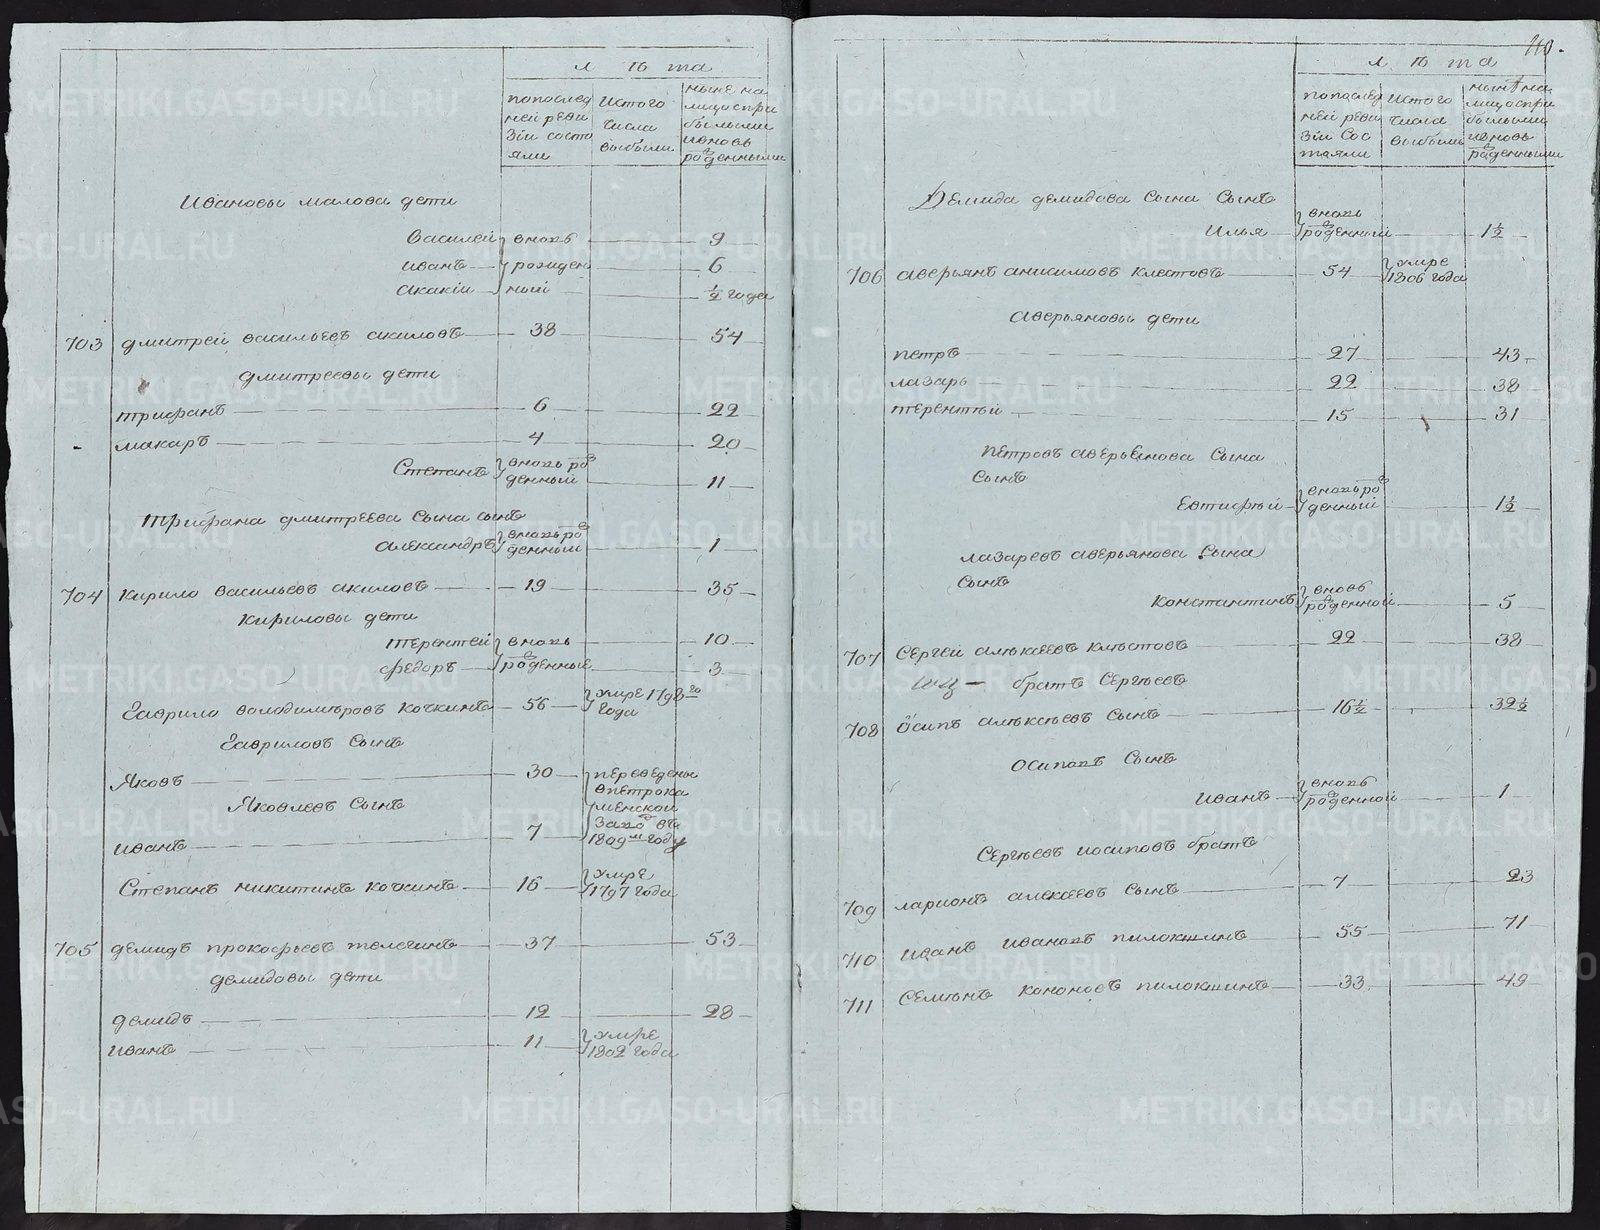 лѣта
попослед
ней реви
зіи состо
яли
Истого
числа
выбыли
ныне на
лицо спри
былыми
ивновь
роденными
Ивановы малова дети
Василей вновь 9
иванъ рожден 6
Акакіи ныи ½ года
703 дмитреи васильевъ акиловъ 38 54
дмитреевы дети
трифанъ 6 22
макаръ 4 20
Степанъ вновь ро
денныи 11
трифана дмитреева сына сынъ
александръ вновь ро
денныи 1
704 кирило васильевъ акиловъ 19 35
кириловы дети
терентеи вновь 10
федоръ роденные 3
Гаврило володимѣровъ кочкинъ 56 умре 1798го
года
Гавриловъ Сынъ
Яковъ 30 переведены
впетрока
Яковлевъ Сынъ менской
иванъ 7 завод въ
1809м году
Степанъ никитинъ кочкинъ 16 умре
1797 года
705 демидъ прокофьевъ телегинъ 37 53
демидовы дети
демидъ 12 28
иванъ 11 умре
1802 года
110.
лѣта
попослед
ней реви
зіи Сос
тояли
Истого
числа
выбыли
нынѣ на
лицо спри
былыми
ивновь
роденными
Демида демидова сына Сынъ
Илья вновь
роденныи 1½
706 аверьянъ анисимовъ клестовъ 54 умре
1806 года
Аверьяновы дети
петръ 27 43
лазарь 22 38
терентѣи 15 31
Петровъ аверьенова Сына
Сынъ
Евтифѣи вновь ро
денныи 1½
лазаревъ аверьянова Сына
Сынъ
константинъ вновь
роденной 5
707 Сергеи алѣксеевъ клѣстовъ 22 38
братъ Сергѣевъ
708 Осипъ алѣксѣевъ Сынъ 16½ 32½
Осиповъ Сынъ
иванъ вновь
роденной 1
Сергѣевъ иосиповъ братъ
709 ларионъ алексеевъ Сынъ 7 23
710 иванъ ивановъ пилокшинъ 55 71
711 Семѣнъ кононовъ пилокшинъ 33 49